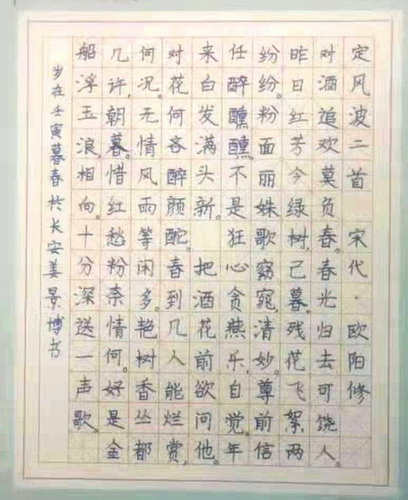 定风波二首 宋代·欧阳修
对酒追欢莫负春。春光归去可饶人。
昨日红芳今绿树,已暮。残花飞絮两
纷纷。粉面丽姝歌窈窕,清妙。尊前信
任醉醺醺。不是狂心贪燕乐,自觉。年
来白发满头新。 把酒花前欲问他。
对花何吝醉颜酡。春到几人能烂赏,
何况。无情风雨等闲多。艳树香丛都
几许,朝暮。惜红愁粉奈情何。好是金
船浮玉浪,相向。十分深送一声歌。
岁在壬寅暮春於长安姜景博书